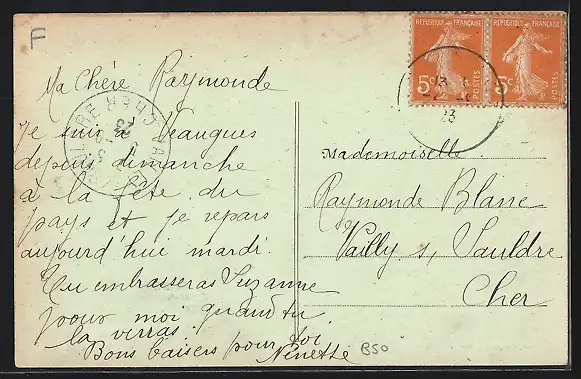 F
Ma Chère Raymonde
Je suis à Veaugues
depuis dimanche
à la fête du
pays et je repars
aujourd'hui mardi.
Tu embrasseras Suzanne
pour moi quand tu
la verras
Bons baisers pour toi
Ninette
B50
REPUBLIQUE FRANÇAISE
5c
POSTES
REPUBLIQUE FRANÇAISE
5c
POSTES
23
Mademoiselle
Raymonde Blanc
Vailly s, Sauldre
Cher